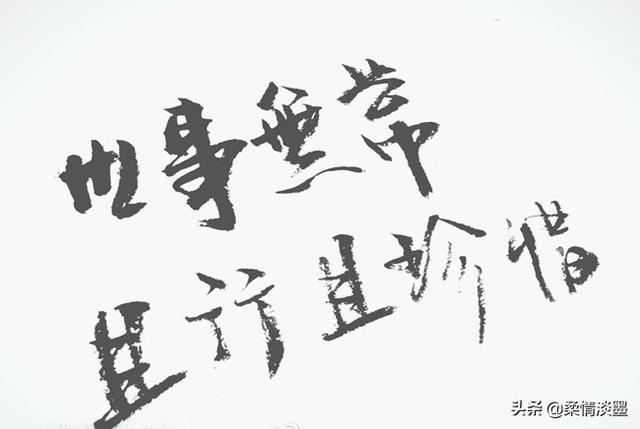 世事無常
且行且珍惜
头条 @柔情淡墨